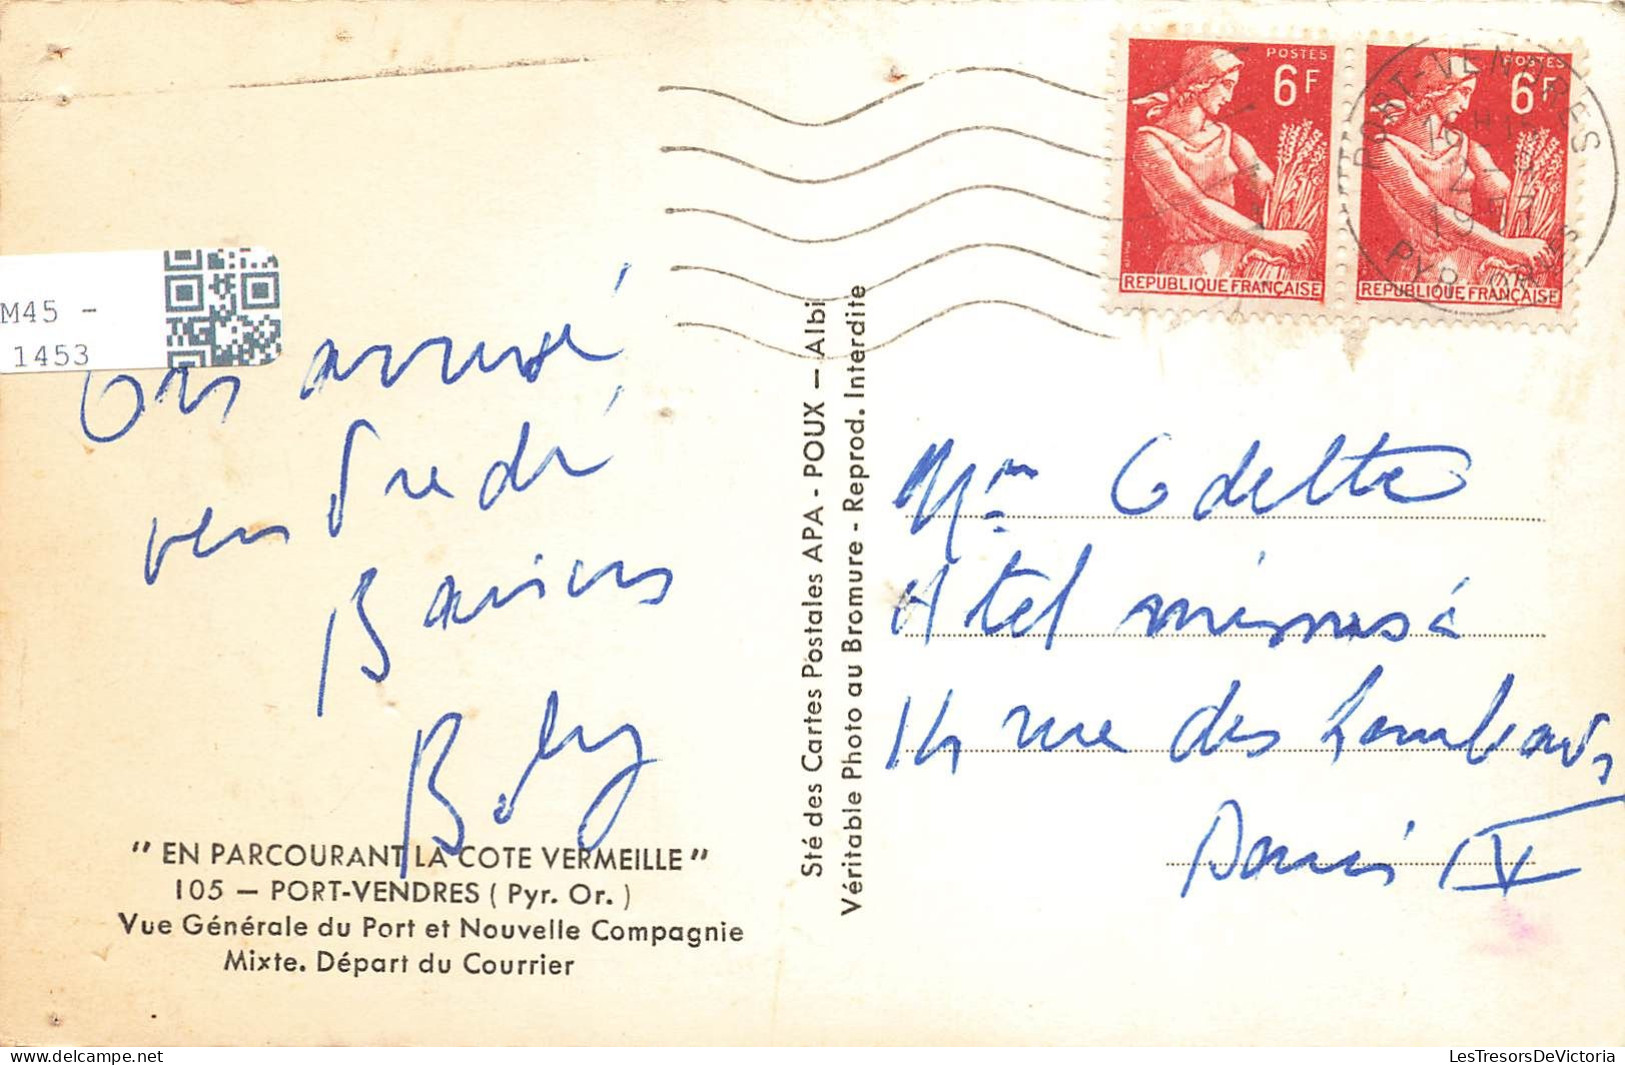 M45 -
1453
Bons
vendredi
Baisers
Boby
" EN PARCOURANT LA COTE VERMEILLE "
105 — PORT-VENDRES ( Pyr. Or. )
Vue Générale du Port et Nouvelle Compagnie
Mixte. Départ du Courrier
Sté des Cartes Postales APA - POUX — Albi
Véritable Photo au Bromure - Reprod. Interdite
POSTES
6F
REPUBLIQUE FRANÇAISE
POSTES
6F
REPUBLIQUE FRANÇAISE
PORT-VENDRES
1957
Mme Odette
14 rue des Lombards
Paris IV
LesTresorsDeVictoria